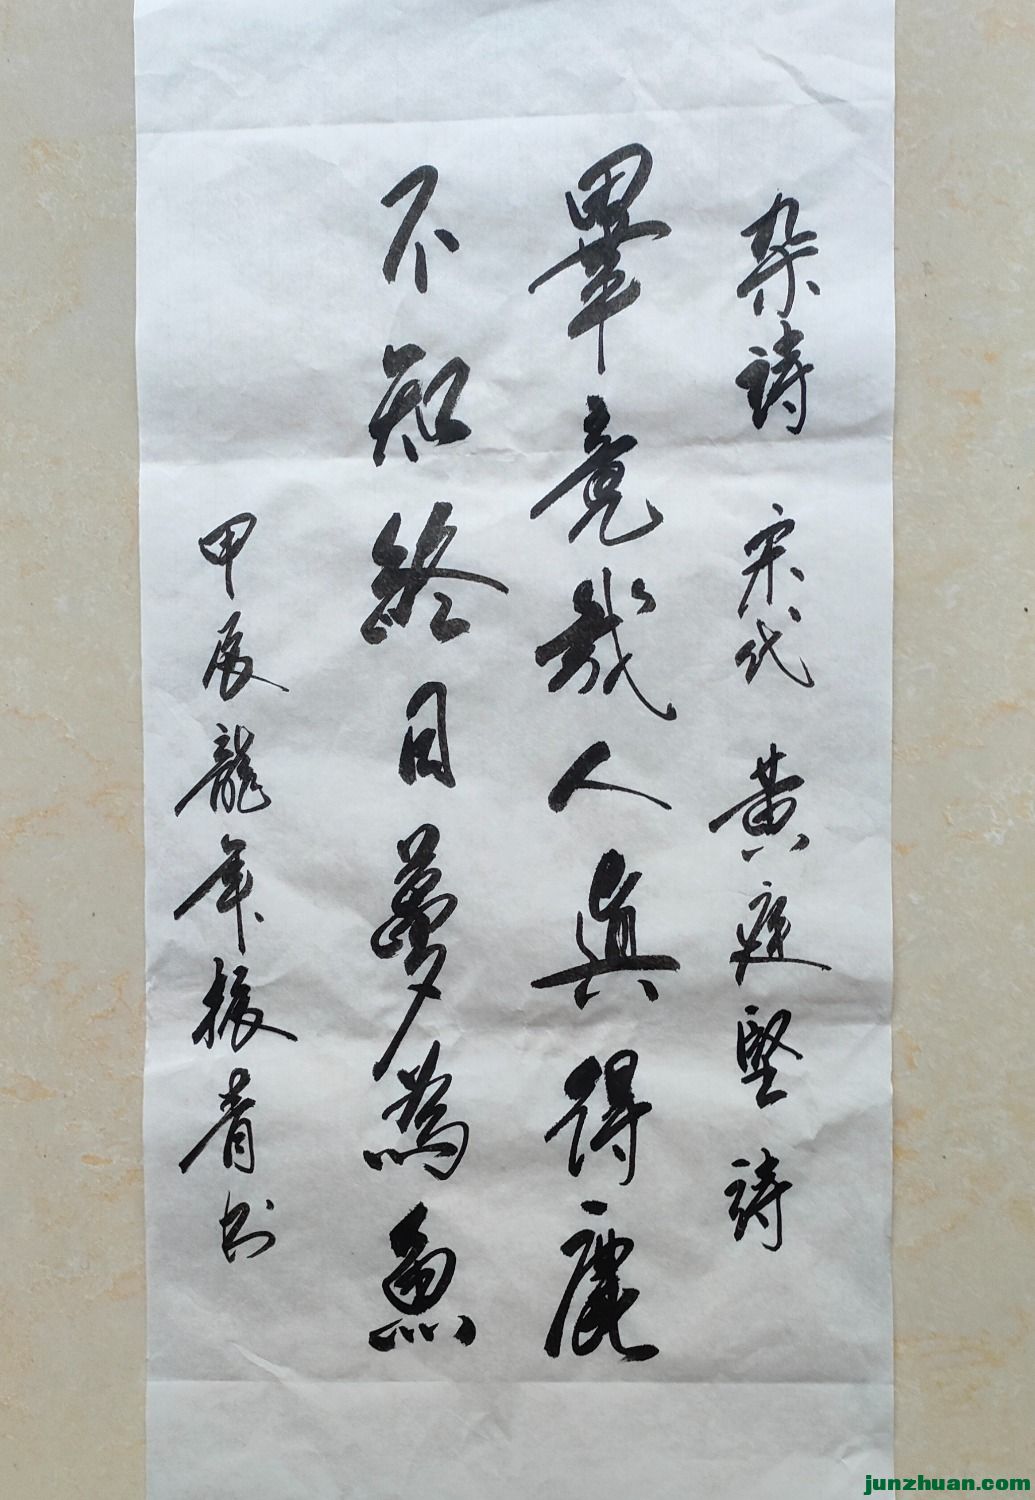 杂詩 宋代 黄庭堅 詩
畢竟幾人真得鹿
不知終日夢為魚
甲辰龍年振青书
junzhuan.com